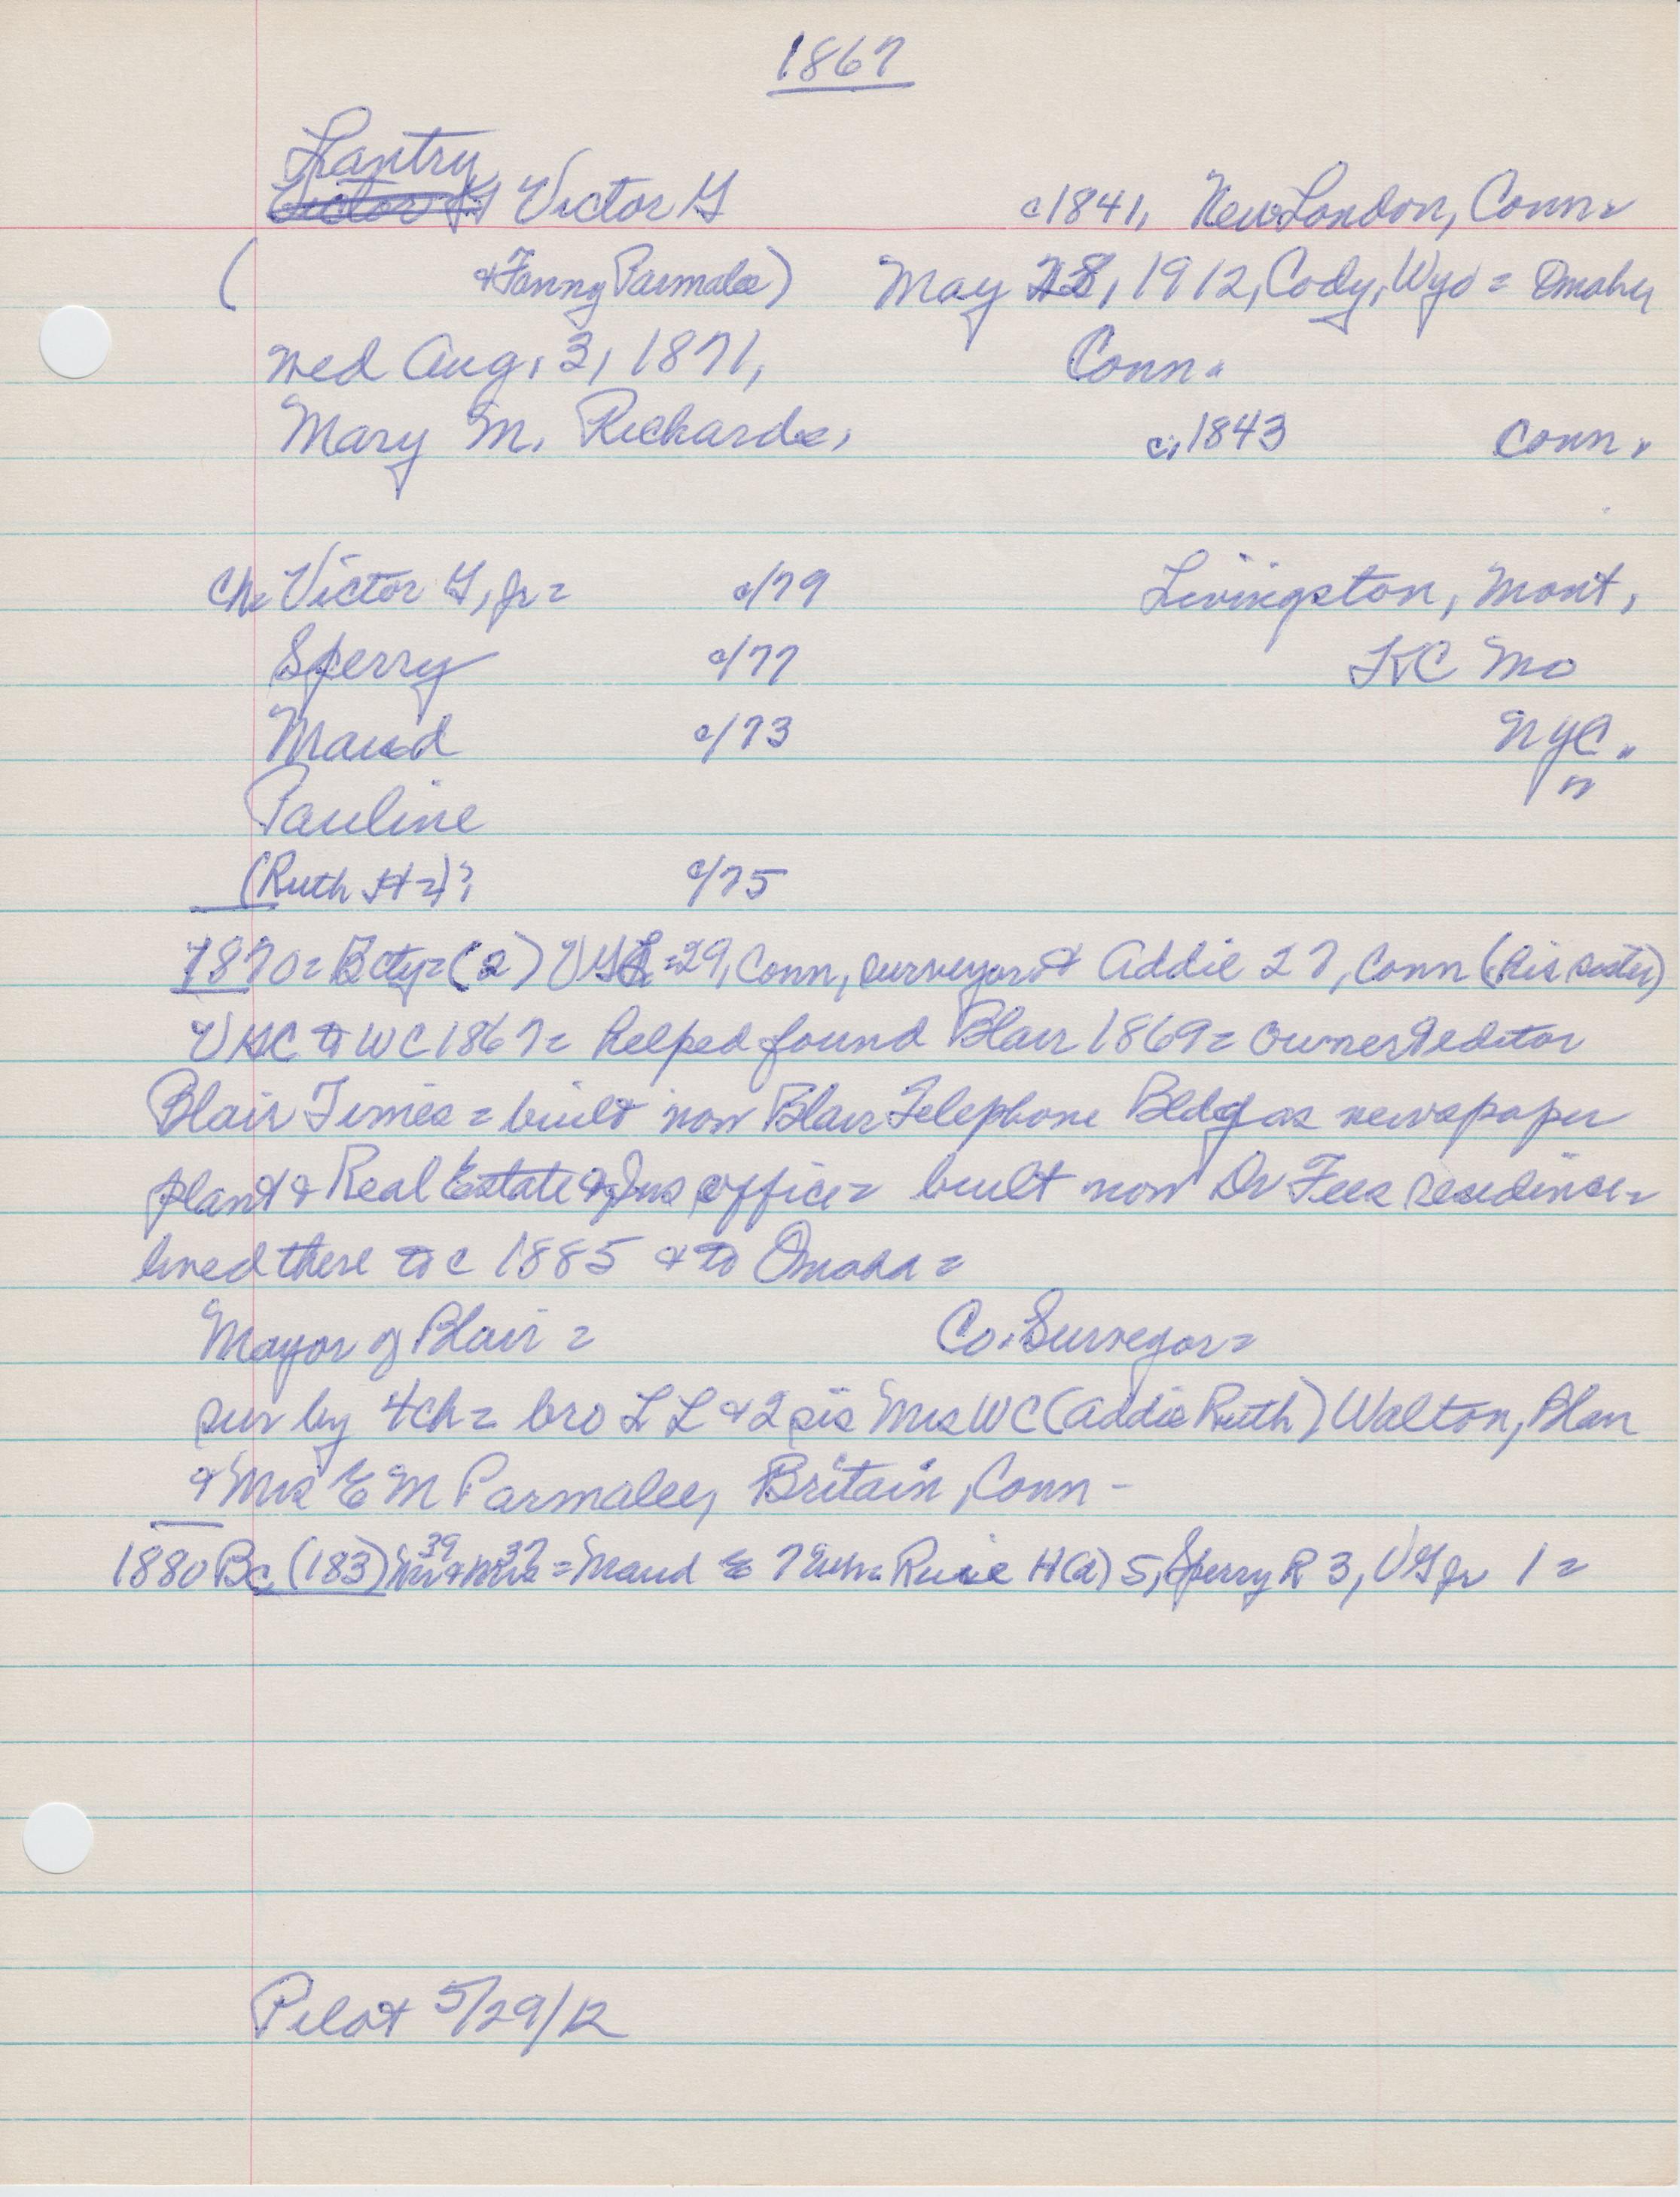 1867
Lantry
Victor G
c1841, New London, Conn=
( & Fanny Parmalee) May 28, 1912, Cody, Wyo = Omaha
wed Aug, 3, 1871, Conn.
Mary M. Richards, c, 1843 Conn.
Ch= Victor G, Jr = c/79 Livingston, Mont,
Sperry c/77 KC Mo
Maud c/73 NYC.
Pauline "
(Ruth H=)? c/75
1870= Bcty=(2) VGL=29, Conn, surveyor & Addie 27, Conn (his sister)
to WC 1867= helped found Blair 1869= owner & editor
Blair Times = built now Blair Telephone Bldg as newspaper
plant & Real Estate & Ins office= built now Dr Fees residence=
lived there to c 1885 & to Omaha=
Mayor of Blair = Co. Surveyor=
sur by 4ch= bro L L & 2 sis Mrs WC (Addie Ruth) Walton, Blair
& Mrs E M Parmalee, Britain, Conn-
1880 Bc (183) Mr 39 & Mrs 37 = Maud E 7 Rusie H(d) 5, Sperry R 3, VG Jr 1 =
Pilot 5/29/12